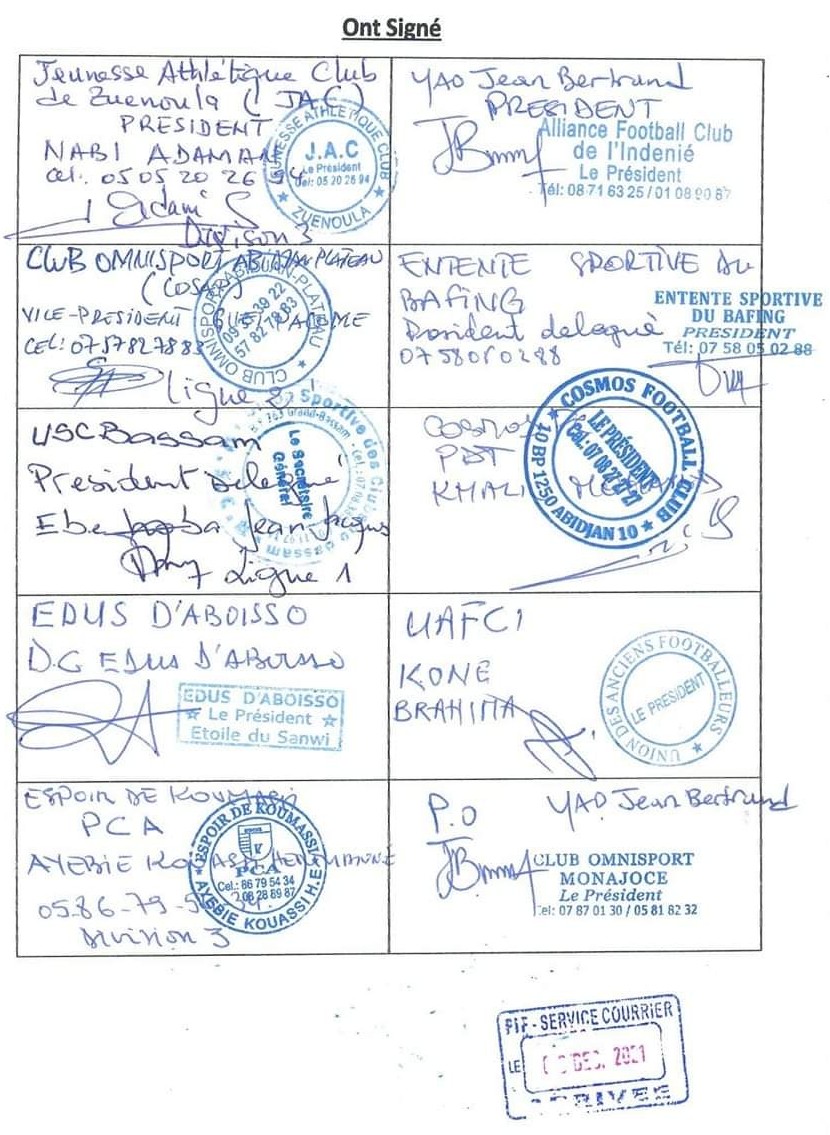 Ont Signé
Jeunesse Athlétique Club
de Zuenoula (JAC)
PRESIDENT
NABI ADAMAN
Cel: 05 05 20 26 94
JEUNESSE ATHLETIQUE CLUB
J.A.C
Le Président
Tel: 05 20 26 94
ZUENOULA
Division 3
YAO Jean Bertrand
PRESIDENT
Alliance Football Club
de l'Indenié
Le Président
Tél: 08 71 63 25 / 01 08 90 87
CLUB OMNISPORT ABIDJAN PLATEAU
VICE-PRESIDENT
CEL: 0757827883
57 82 78 83
CLUB OMNISPORT ABIDJAN-PLATEAU
Ligue 2
ENTENTE SPORTIVE du
BAFING
President delegué
0758050288
ENTENTE SPORTIVE
DU BAFING
PRESIDENT
Tél: 07 58 05 02 88
USC Bassam
President Delegué
Jean-Jacques
Ligue 1
Sportive des Clubs
Le Secrétaire
Général
COSMOS
PDT
COSMOS FOOTBALL CLUB
LE PRÉSIDENT
10 BP 1250 ABIDJAN 10
EDUS D'ABOISSO
D.G EDUS D'ABOISSO
EDUS D'ABOISSO
Le Président
Etoile du Sanwi
UAFCI
KONE
BRAHIMA
UNION DES ANCIENS FOOTBALLEURS
LE PRESIDENT
ESPOIR DE KOUMASSI
PCA
AYEBIE KOUASSI
05.86-79-
Division 3
ESPOIR DE KOUMASSI
PCA
Cel.: 86 79 54 34
08 28 89 87
AYEBIE KOUASSI H.E
P.O YAO Jean Bertrand
CLUB OMNISPORT
MONAJOCE
Le Président
Tel: 07 87 01 30 / 05 81 82 32
FIF - SERVICE COURRIER
LE DEC. 2021